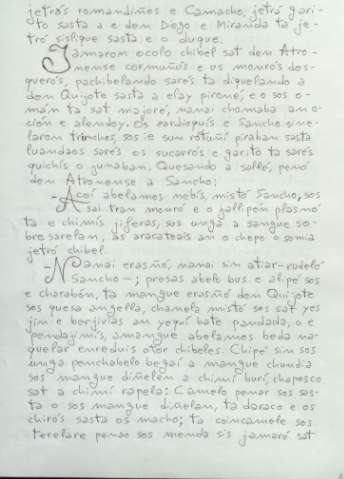 jetrós romandiños e Camacho, jetró gari-
to sasta a e dem Diego e Miranda ta je-
tró sislique sasta e o duque.
Jamarom ocolo chibel sat dem Atro-
nense cormuñós e os mouros dos-
querós, pachibelando sarés ta diquelando a
dem Quijote sasta a elay pirome, e o sos o-
mán ta sat majoré, nanai chomaba an o-
ción e alendoy. Es eardisquis e Sancho sine-
larom trinches, sos ie sun rotuñí piraban sasta
luandaos sarés os sucarrós e garitó ta sarés
quichís o junaban. Quesando a sallé, penó
dem Atronense a Sancho:
-Acoí abelamos nebís, mistó Sancho, sos
sai tran mouró e o jallipón plasmo
ta e chimís jiferas, sos unga a sangue so-
bresarelan, as aracateais an o chepo o somia
jetró chibel.
-Nanai erasñó, nanai sin atiar -rudeló
Sancho-; presas abelo bus e alipé sos
e charabón, ta mangue erasñó dem Quijote,
sos quesa angella, chanela mistó sos sat yes
jin e berjivias am yequí bate pandada, o e
pendajimis, amangue abelamos beda na-
quelar enreduis otor chibeles. Chipé sin sos
unga penchabelo begaí a mangue chundia
sos mangue diñelen a chimí burí, chapesco
sat a chimí rapela: Camelo penar sos sas-
ta o sos mangue diñelan, ta doraco e os
chirós sasta os macho; ta coincamele sos
terelare penao sos menda sis jamaró sat